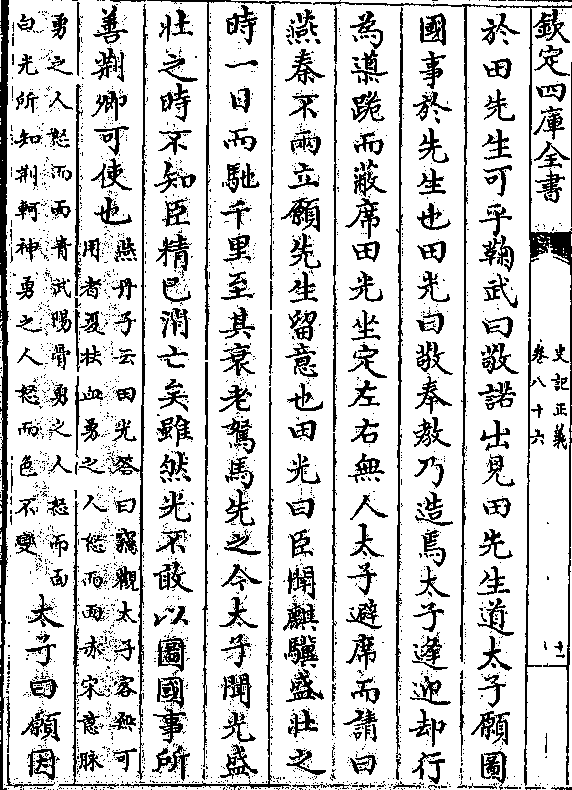 欽定四庫全書
史記正義
卷八十六
十一
於田先生可乎鞠武曰敬諾出見田先生道太子願圖
國事於先生也田光曰敬奉教乃造焉太子逢迎却行
為導跪而蔽席田光坐定左右無人太子避席而請曰
燕秦不兩立願先生留意也田光曰臣聞騏驥盛壯之
時一日而馳千里至其衰老駑馬先之今太子聞光盛
壯之時不知臣精已消亡矣雖然光不敢以圖國事所
善荆卿可使也
燕丹子云田光答曰竊觀太子客無可
用者夏扶血勇之人怒而面赤宋意脉
勇之人怒而面青武陽骨勇之人怒而面
白光所知荆軻神勇之人怒而色不變
太子曰願因